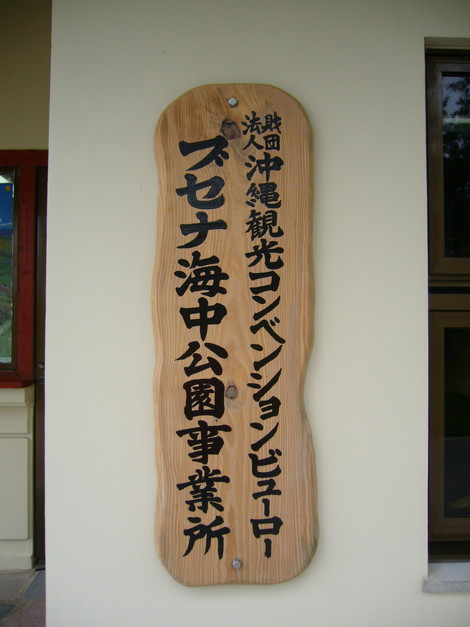 財団法人沖縄観光コンベンションビューロー
ブセナ海中公園事業所